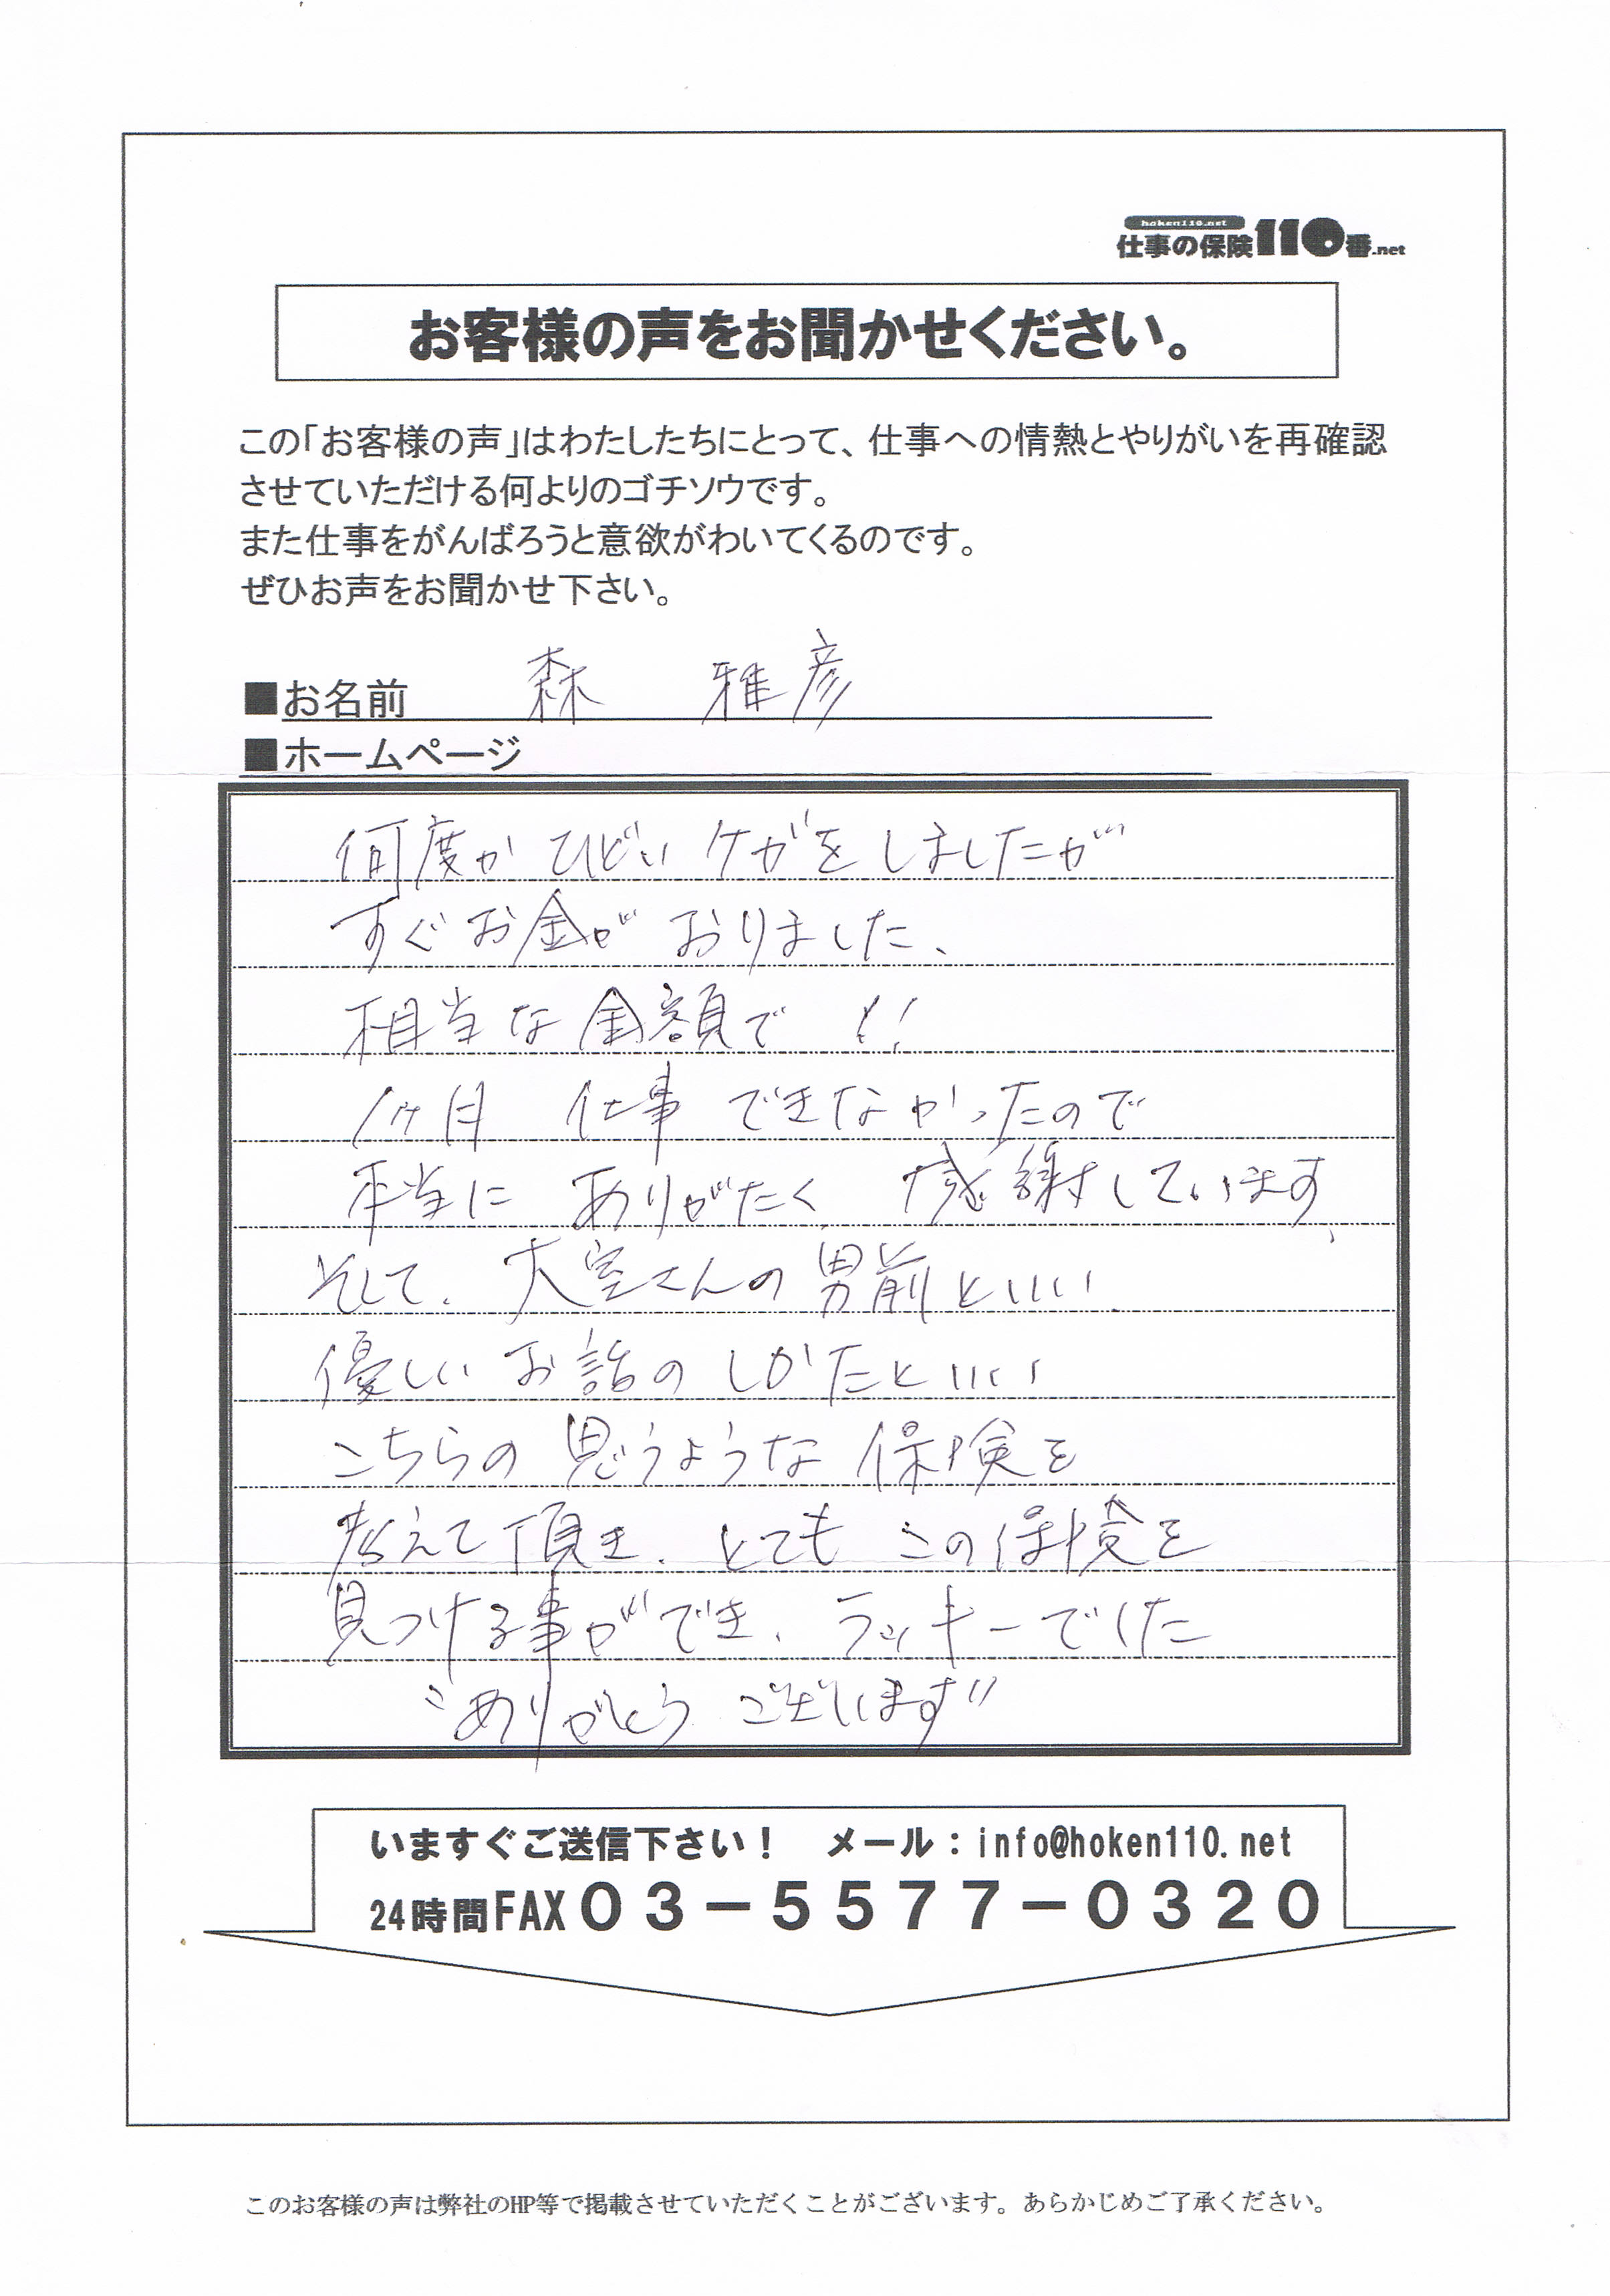 hoken110.net
仕事の保険110番.net
お客様の声をお聞かせください。
この「お客様の声」はわたしたちにとって、仕事への情熱とやりがいを再確認
させていただける何よりのゴチソウです。
また仕事をがんばろうと意欲がわいてくるのです。
ぜひお声をお聞かせ下さい。
■お名前 森 雅彦
■ホームページ
何度かひどいケガをしましたが
すぐお金がおりました、
相当な金額で !!
1ヶ月 仕事できなかったので
本当に ありがたく 感謝しています、
そして、大室さんの男前といい
優しいお話のしかたといい
こちらの思うような保険を
考えて頂き、とてもこの保険を
見つける事ができ、ラッキーでした
"ありがとうございます"
いますぐご送信下さい! メール:info@hoken110.net
24時間FAX03-5577-0320
このお客様の声は弊社のHP等で掲載させていただくことがございます。あらかじめご了承ください。